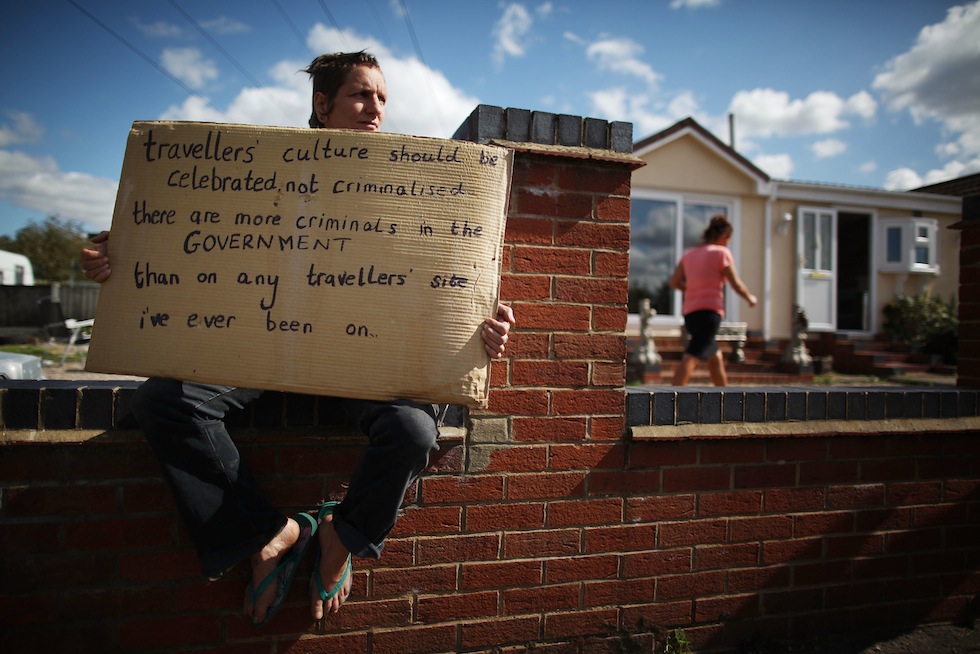 travellers' culture should be
celebrated, not criminalised
there are more criminals in the
GOVERNMENT
than on any travellers' site
i've ever been on..